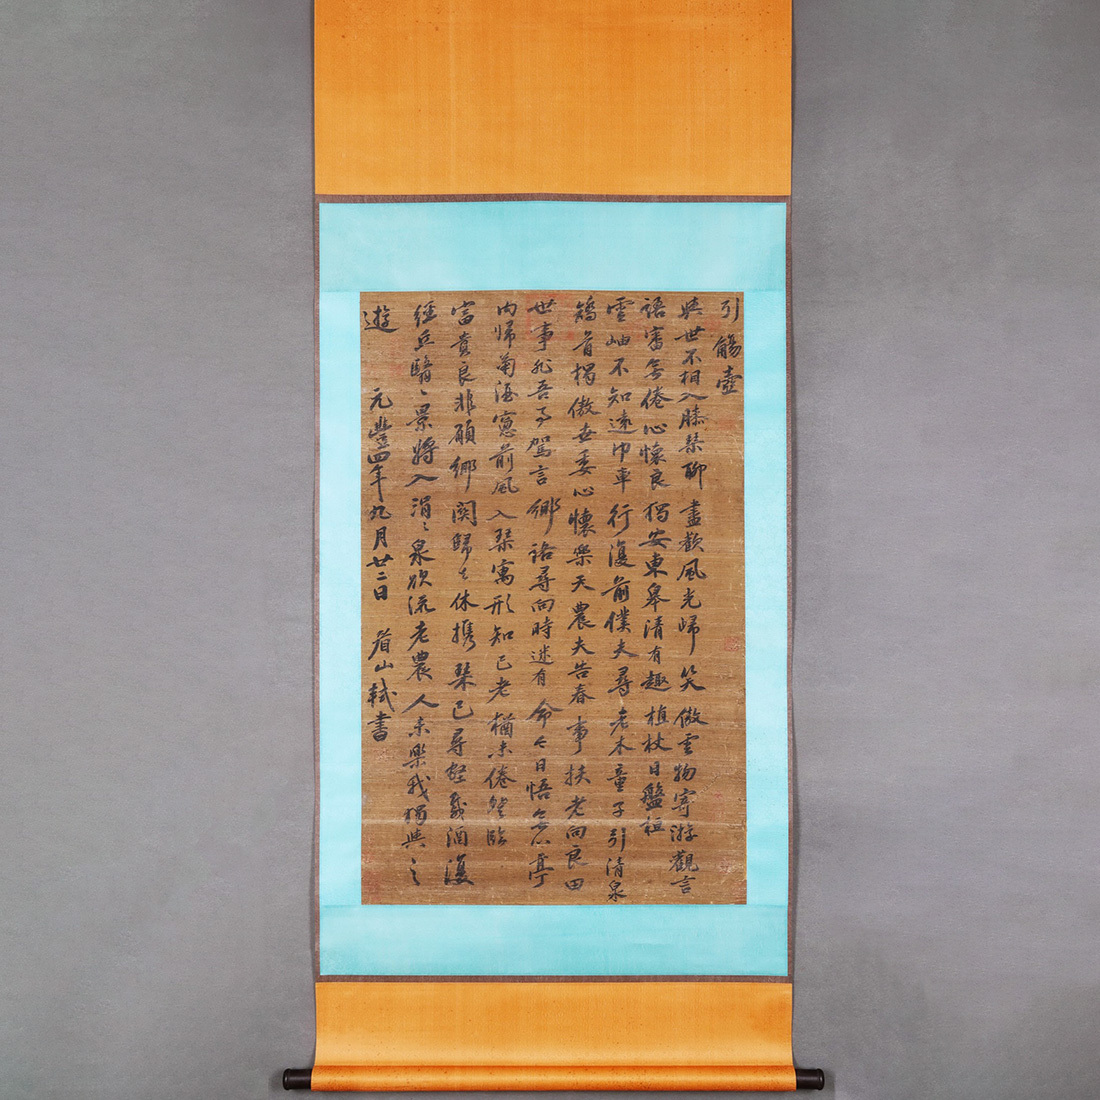 引觴壺
與世不相入膝琴聊盡歡風光歸笑傲雲物寄游觀言
語審無倦心懷良獨安東皋清有趣植杖日盤桓
雲岫不知遠巾車行復前僕夫尋老木童子引清泉
矯首獨傲世委心懷樂天農夫告春事扶老向良田
世事非吾事駕言鄉語尋向時迷有命今日悟無心亭
內帰菊酒窓前風入琴寓形知已老猶未倦登臨
富貴良非願鄉関歸去休携琴已尋壑載酒復
經丘翳〻景將入涓〻泉欲流老農人未樂我獨與之
遊
元豐四年九月廿二日 眉山軾書